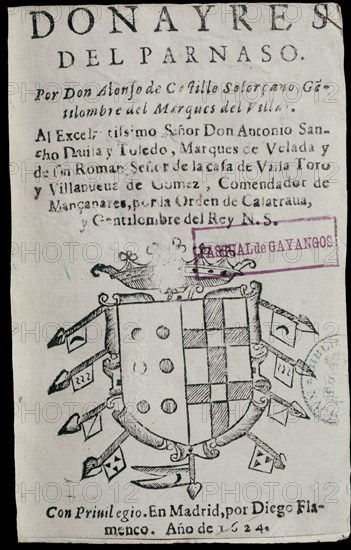 DONAYRES
DEL PARNASO.
Por Don Alonso de Castillo Solorçano, Gẽ-
tilombre del Marques del Villar.
Al Excelentissimo Señor Don Antonio San-
cho Dauila y Toledo, Marques de Velada y
de San Roman, Señor de la casa de Villa Toro
y Villanueua de Gomez, Comendador de
Mançanares, por la Orden de Calatraua,
y Gentilombre del Rey N. S.
PASCUAL de GAYANGOS
Con Priuilegio. En Madrid, por Diego Fla-
menco. Año de 1624.
PHOTO 12